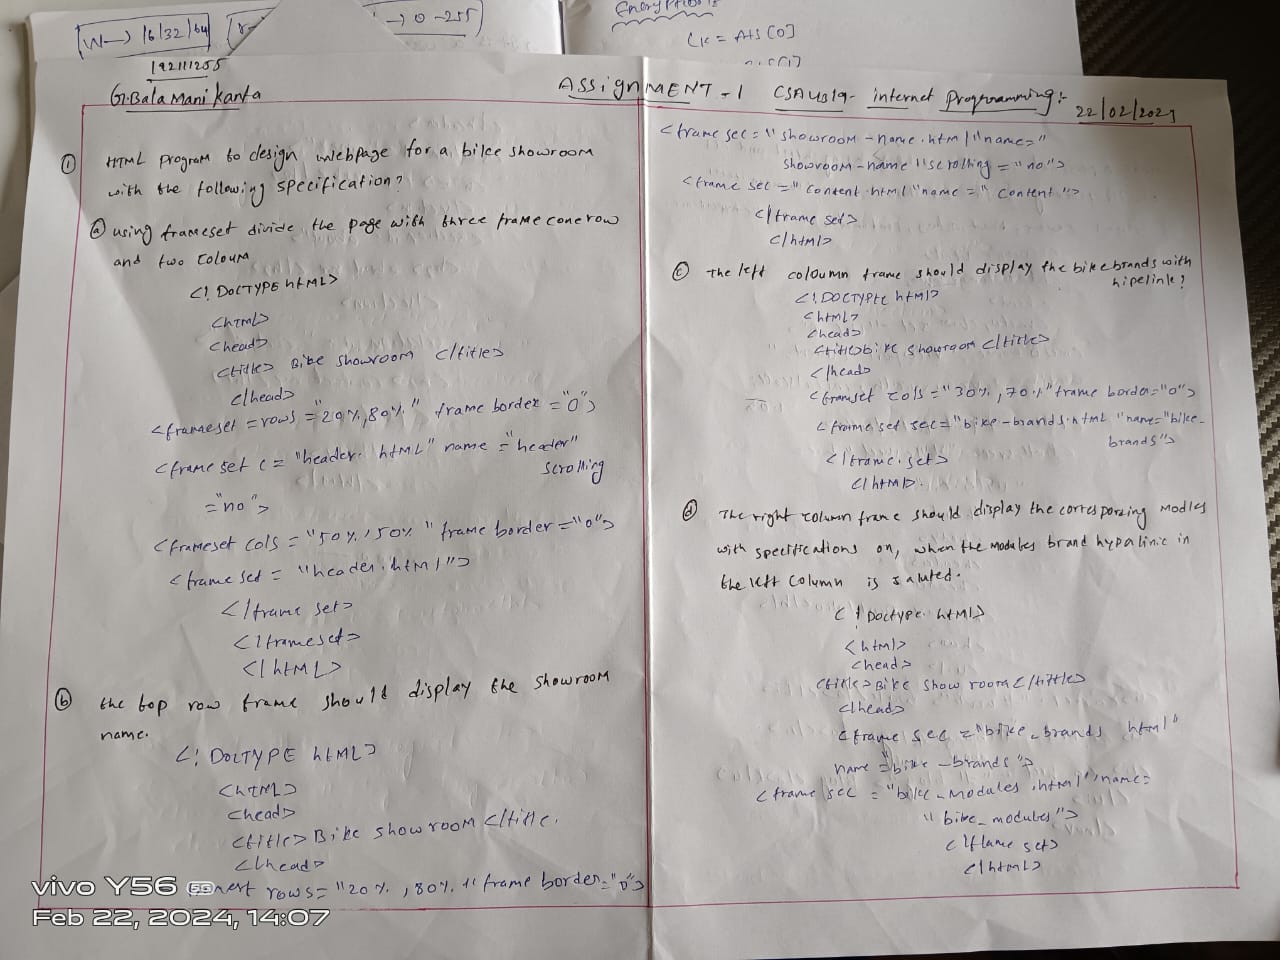 [W→ 16/32/64]
→ 0-255
Encryption:
LK = A+S[0]
192111255
G.Bala Mani Kanta
ASSIGNMENT-1 CSA4319- internet Programming:-
22/02/2024
① HTML program to design webpage for a bike showroom
with the following specification?
ⓐ using frameset divide the page with three frame cone row
and two coloum
<! DOCTYPE HTML>
<HTML>
<head>
<title> Bike showroom </title>
</head>
<frameset =rows ="20%,80%." frame border ="0">
<frame set c= "header. HTML" name ="header"
scrolling
="no">
<frameset cols = "50%,50%" frame border ="0">
<frame set = "header.html">
</frame set>
</frameset>
</HTML>
ⓑ the top row frame should display the showroom
name.
<! DOCTYPE HTML>
<HTML>
<head>
<title> Bike showroom </title.
</head>
rows="20%,80%." frame border="0">
<frame sec="showroom-name.html"name="
showroom-name"scrolling="no">
<frame sec="content.html"name="content">
</frame set>
</html>
ⓒ The left coloumn frame should display the bike brands with
hipelink?
<!DOCTYPE html>
<html>
<head>
<title>bike showroom </title>
</head>
<framset cols="30%,70%"frame border="0">
<frame set sec="bike-brands.html "name="bike-
brands">
</frame.set>
</html>.
ⓓ The right column frame should display the corresponzing modles
with specifications on, when the modules brand hypalinic in
the left column is saluted.
<! Doctype. html>
<html>
<head>
<title>Bike show room </title>
</head>
<frame sec ="bike-brands html"
name ="bike-brands">
<frame sec ="bike-modules.html"name=
"bike_modules">
</flame set>
</html>
vivo Y56 5G
Feb 22, 2024, 14:07